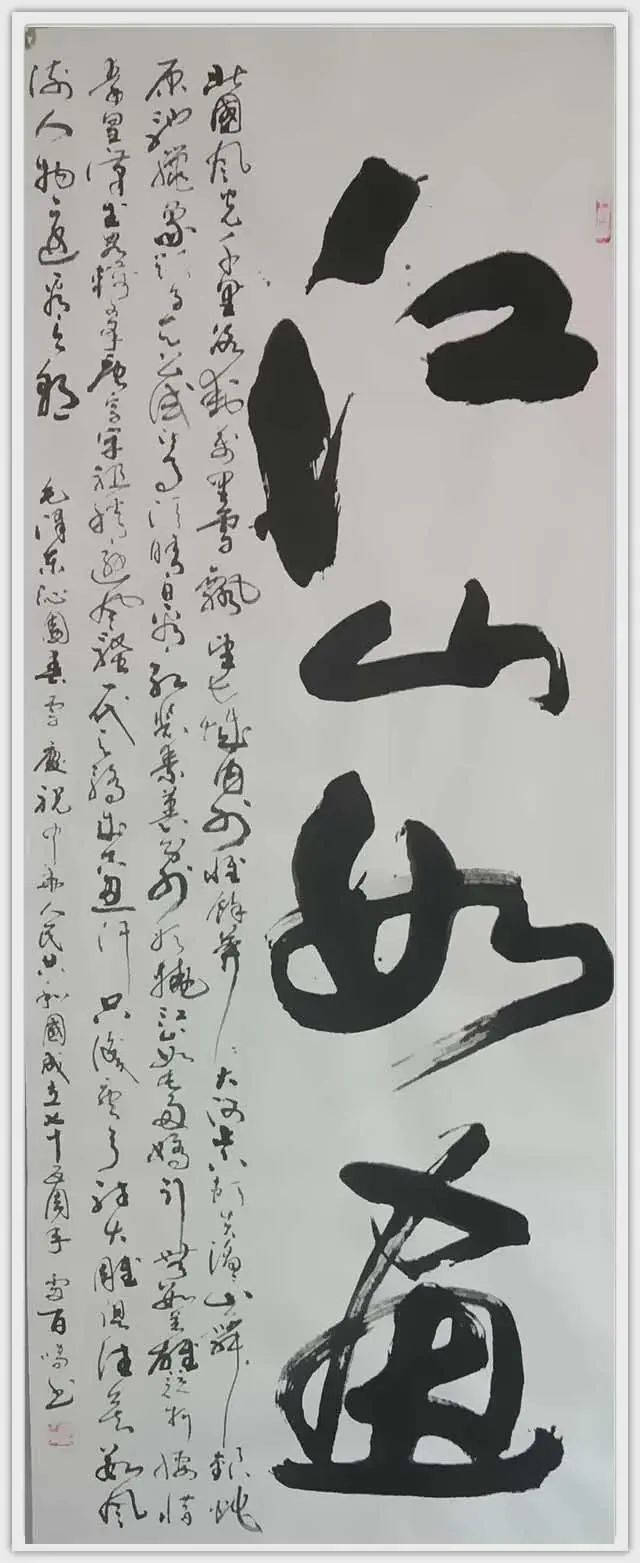 江山如畫
北國风光千里冰封万里雪飄望长城内外惟餘莽莽大河上下顿失滔滔山舞银蛇
原驰蠟象欲与天公试比高须晴日看红装素裹分外妖娆江山如此多娇引無數英雄竞折腰惜
秦皇漢武略输文采唐宗宋祖稍逊风骚一代天骄成吉思汗只識弯弓射大雕俱往矣數风
流人物还看今朝
毛澤东沁園春雪慶祝中华人民共和國成立七十五周年 百书